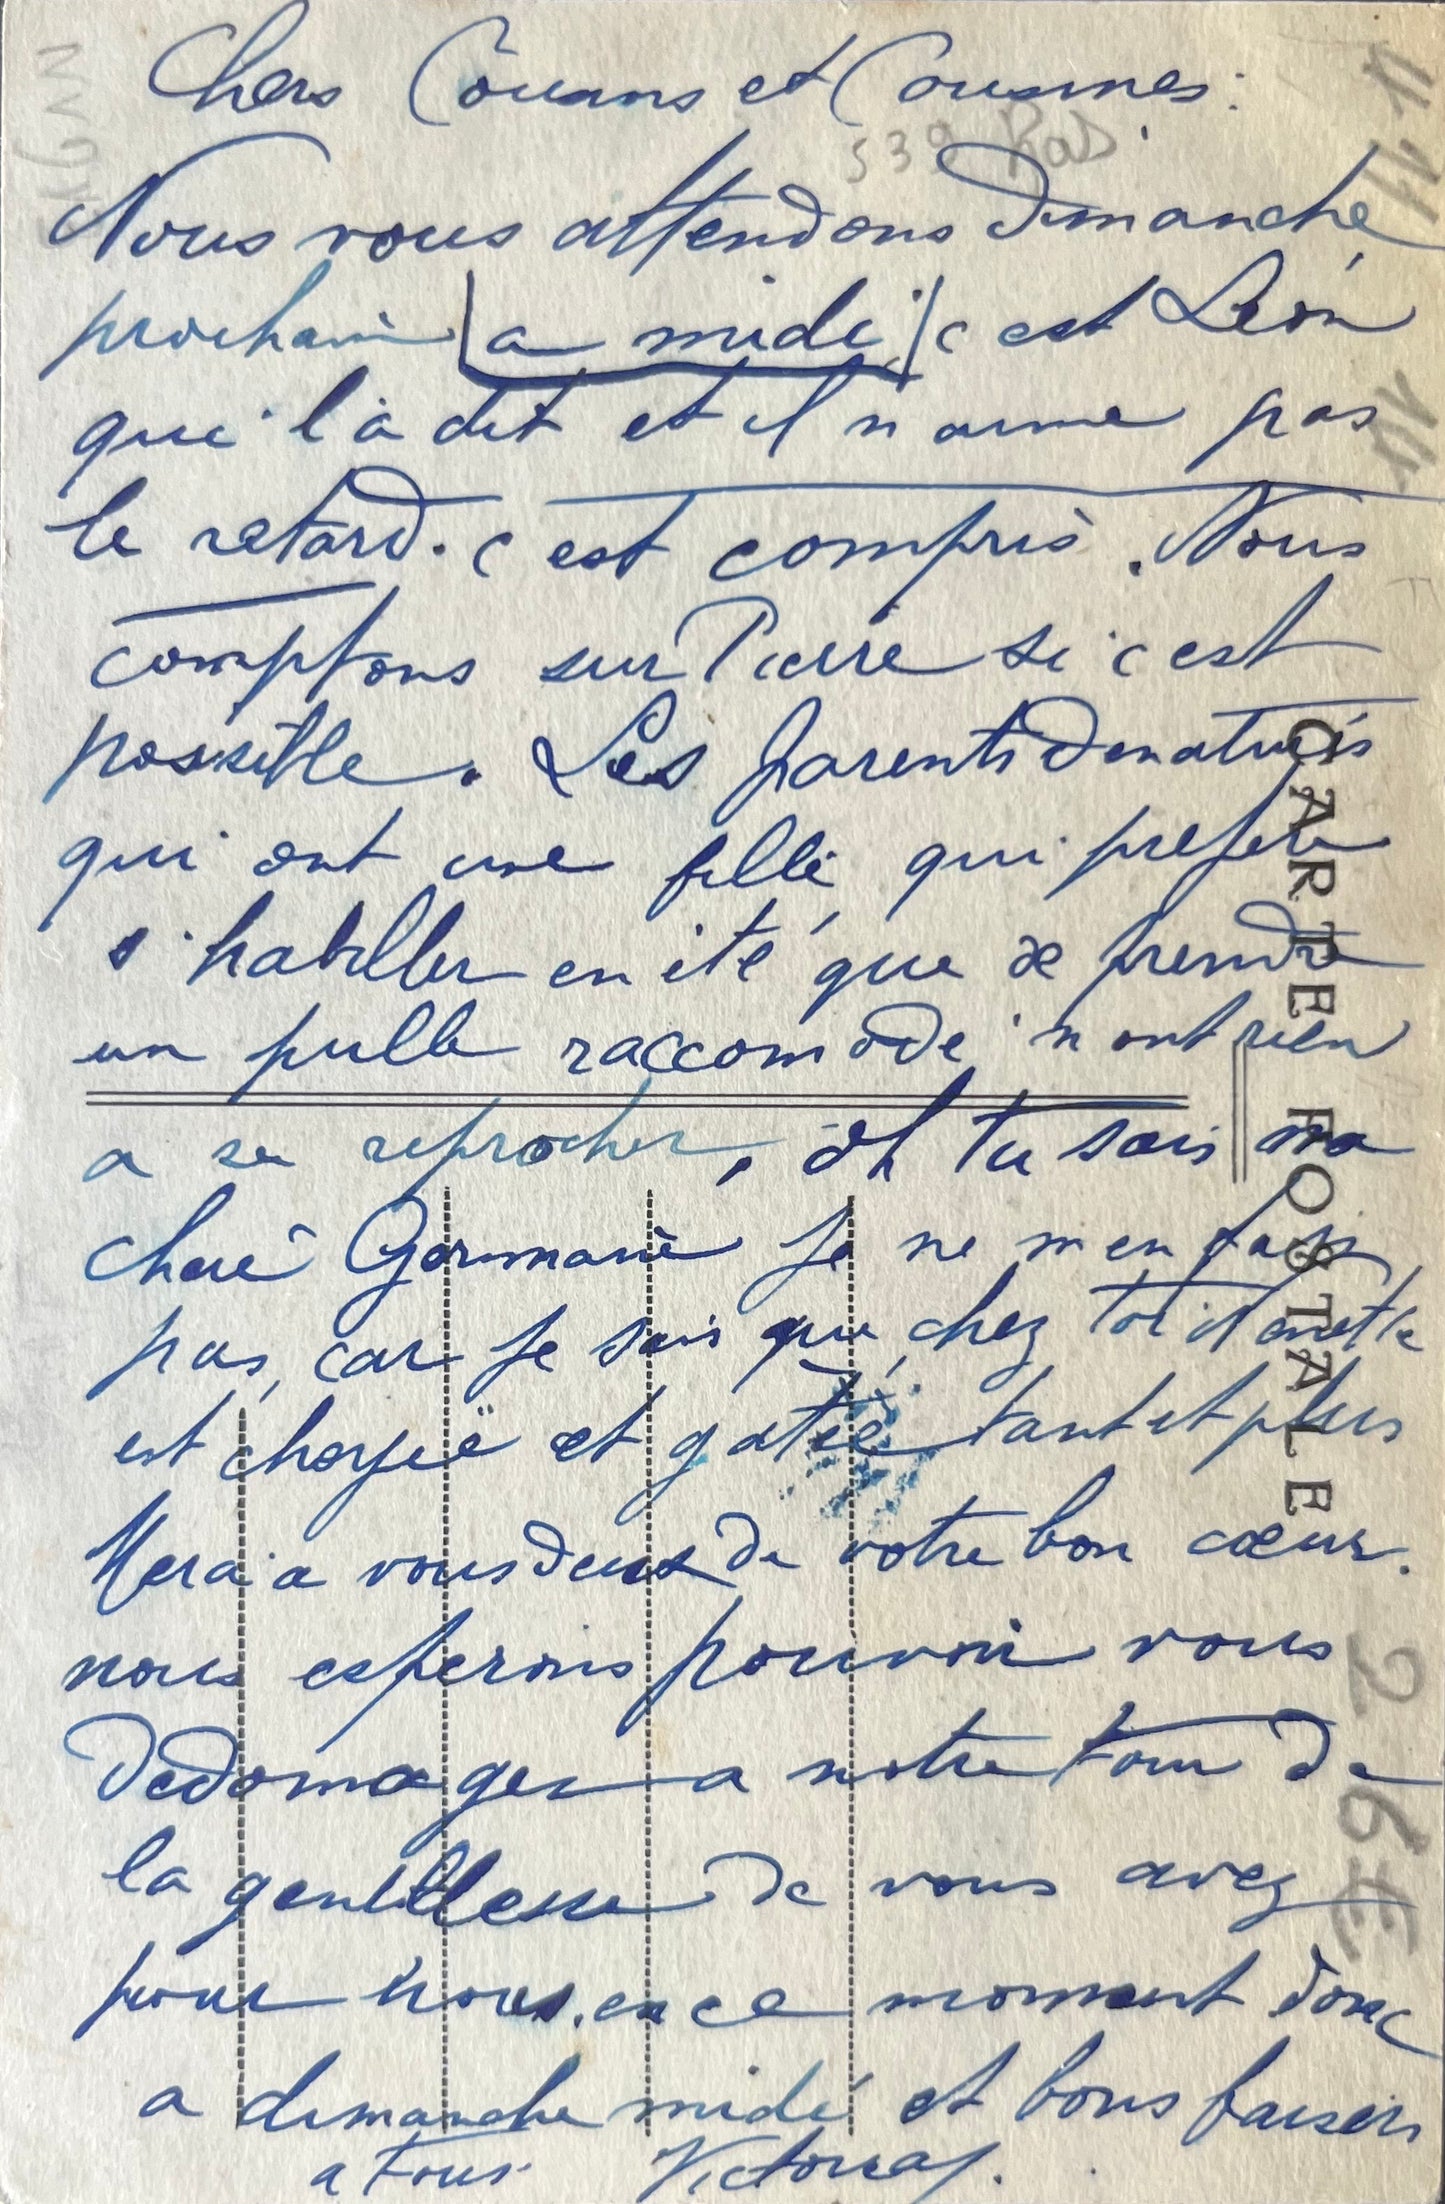 Chers Cousins et Cousines:
539 Ras
Nous vous attendons dimanche
prochain a midi c est Léon
qui l'a dit et il n aime pas
le retard. c est compris. Nous
comptons sur Pierre si c est
possible. Les parents denaturés
qui ont une fille qui prefere
s'habiller en été que de prendre
un pulle raccomodé n ont rien
a se reprocher, oh tu sais ma
chere Germaine Je ne m en fais
pas, car je sais que chez toi
est et gatée tant et plus
Merci a vous deux de votre bon cœur.
nous esperons pouvoir vous
dedomager a notre tour de
la gentillesse de vous avez
pour nous. en ce moment donc
a dimanche midi et bons baisers
a tous
CARTE POSTALE
2 6E